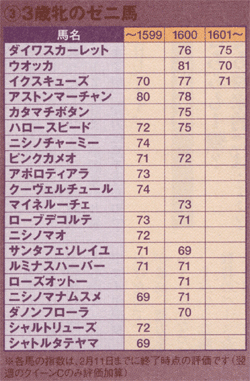 ③3歳牝のゼニ馬
馬名 〜1599 1600 1601〜
ダイワスカーレット 76 75
ウオッカ 81 70
イクスキューズ 70 77 71
アストンマーチャン 80 78
カタマチボタン 75
ハロースピード 72 75
ニシノチャーミー 74
ピンクカメオ 71 72
アポロティアラ 73
クーヴェルチュール 74
マイネルーチェ 73
ローブデコルテ 73 71
ニシノマオ 72
サンタフェソレイユ 71 69
ルミナスハーバー 71 71
ローズオットー 71
ニシノマナムスメ 69 71
ダノンフローラ 70
シャルトリューズ 72
シャトルタテヤマ 69
※各馬の指数は、2月11日までに終了時点の評価です(翌
週のクイーンCのみ評価加算)